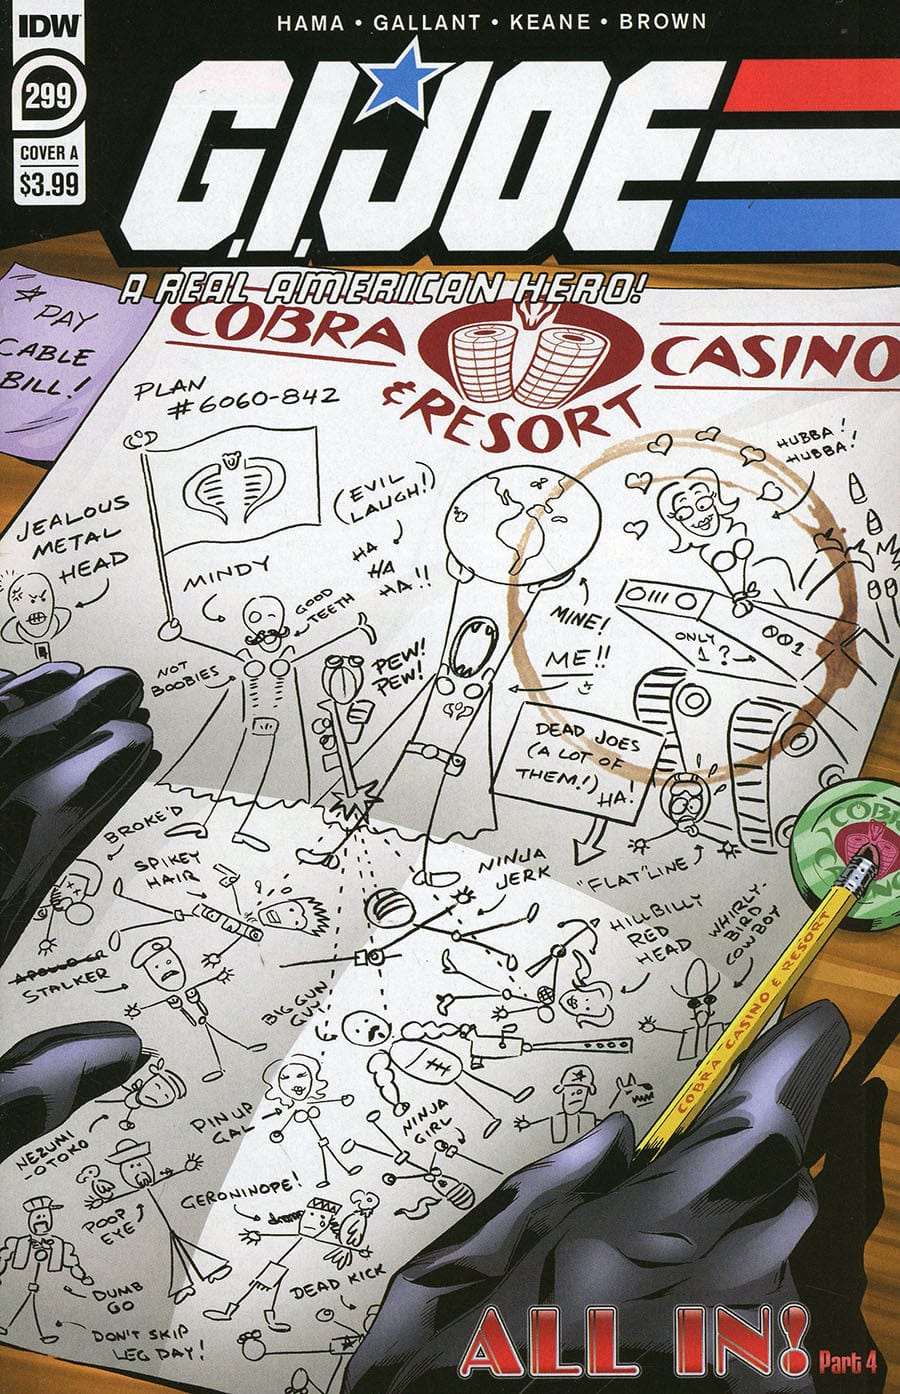 IDW
299
COVER A
$3.99
HAMA • GALLANT • KEANE • BROWN
G.I. JOE
A REAL AMERICAN HERO!
PAY
CABLE
BILL!
COBRA
CASINO
& RESORT
PLAN
#6060-842
JEALOUS
METAL
HEAD
MINDY
(EVIL
LAUGH!)
HA
HA
HA!!
GOOD
TEETH
NOT
BOOBIES
PEW!
PEW!
HUBBA!
HUBBA!
MINE!
ME!!
ONLY
1?
001
DEAD JOES
(A LOT OF
THEM!)
HA!
"FLAT"LINE
BROKE'D
SPIKEY
HAIR
NINJA
JERK
STALKER
BIG GUN
GUY
HILLBILLY
RED
HEAD
WHIRLY-
BIRD
COWBOY
COBRA
COBRA CASINO & RESORT
NEZUMI
-OTOKO
PIN UP
GAL
NINJA
GIRL
POOP
EYE
GERONINOPE!
DUMB
GO
DEAD KICK
DON'T SKIP
LEG DAY!
ALL IN!
Part 4